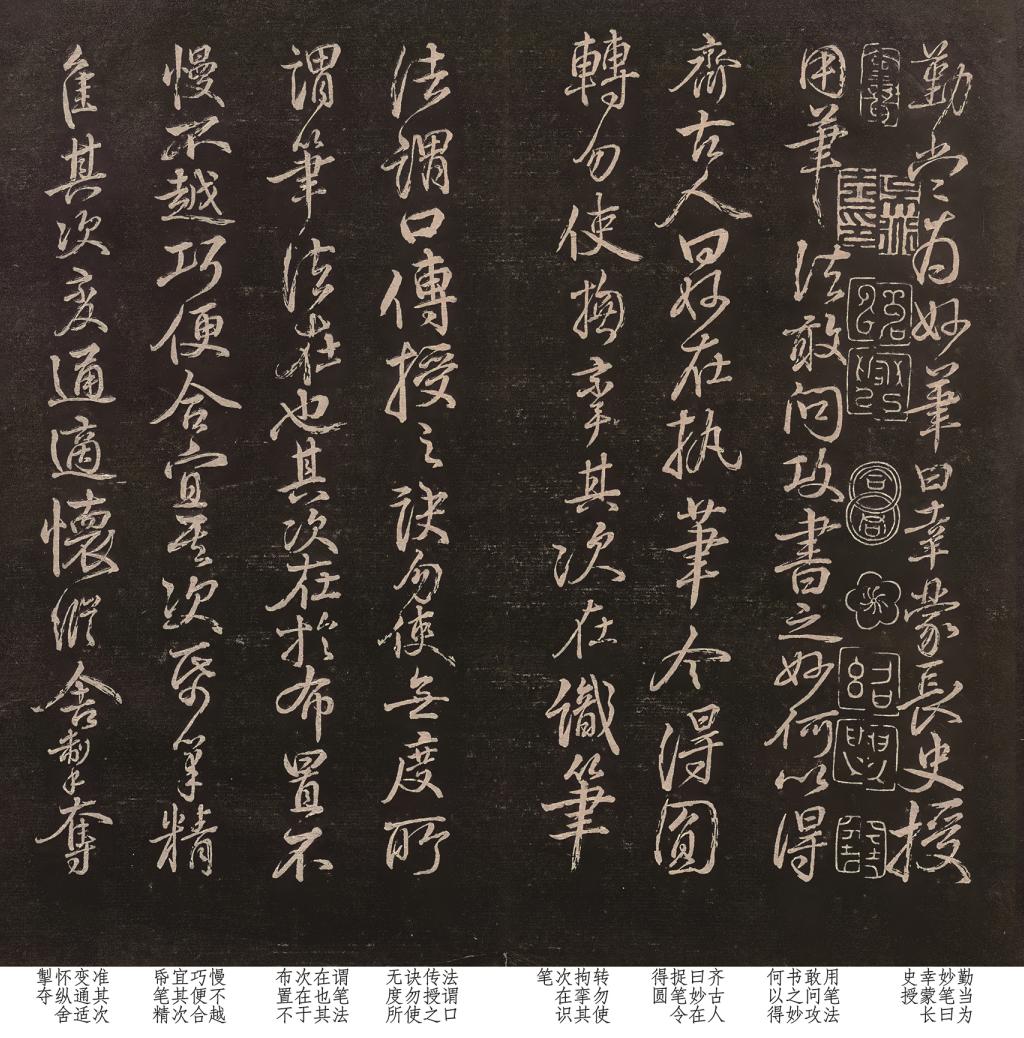 勤當為妙筆曰幸蒙長史授
用筆法敢問攻書之妙何以得
齊古人曰妙在執筆令得圓
轉勿使拘攣其次在識筆
法謂口傳授之訣勿使無度所
謂筆法在也其次在於布置不
慢不越巧便合宜其次帋筆精
隹其次變通適懷縱舍掣奪
勤当为
妙笔曰
幸蒙长
史授
用笔法
敢问攻
书之妙
何以得
齐古人
曰妙在
捉笔令
得圆
转勿使
拘挛其
次在识
笔
法谓口
传授之
诀勿使
无度所
谓笔法
在也其
次在于
布置不
慢不越
巧便合
宜其次
帋笔精
准其次
变通适
怀纵舍
掣夺